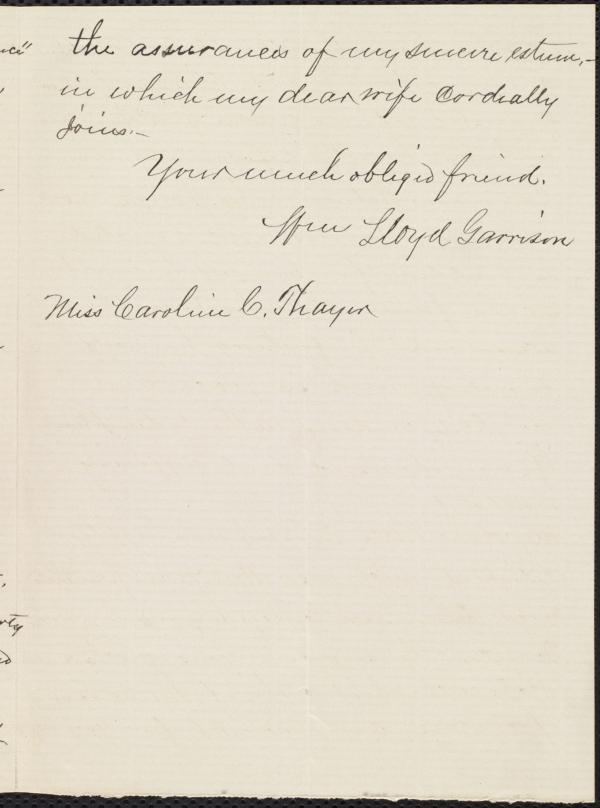 the assurances of my sincere esteem,—
in which my dear wife cordially
joins.—
Your much obliged friend.
Wm Lloyd Garrison
Miss Caroline C. Thayer